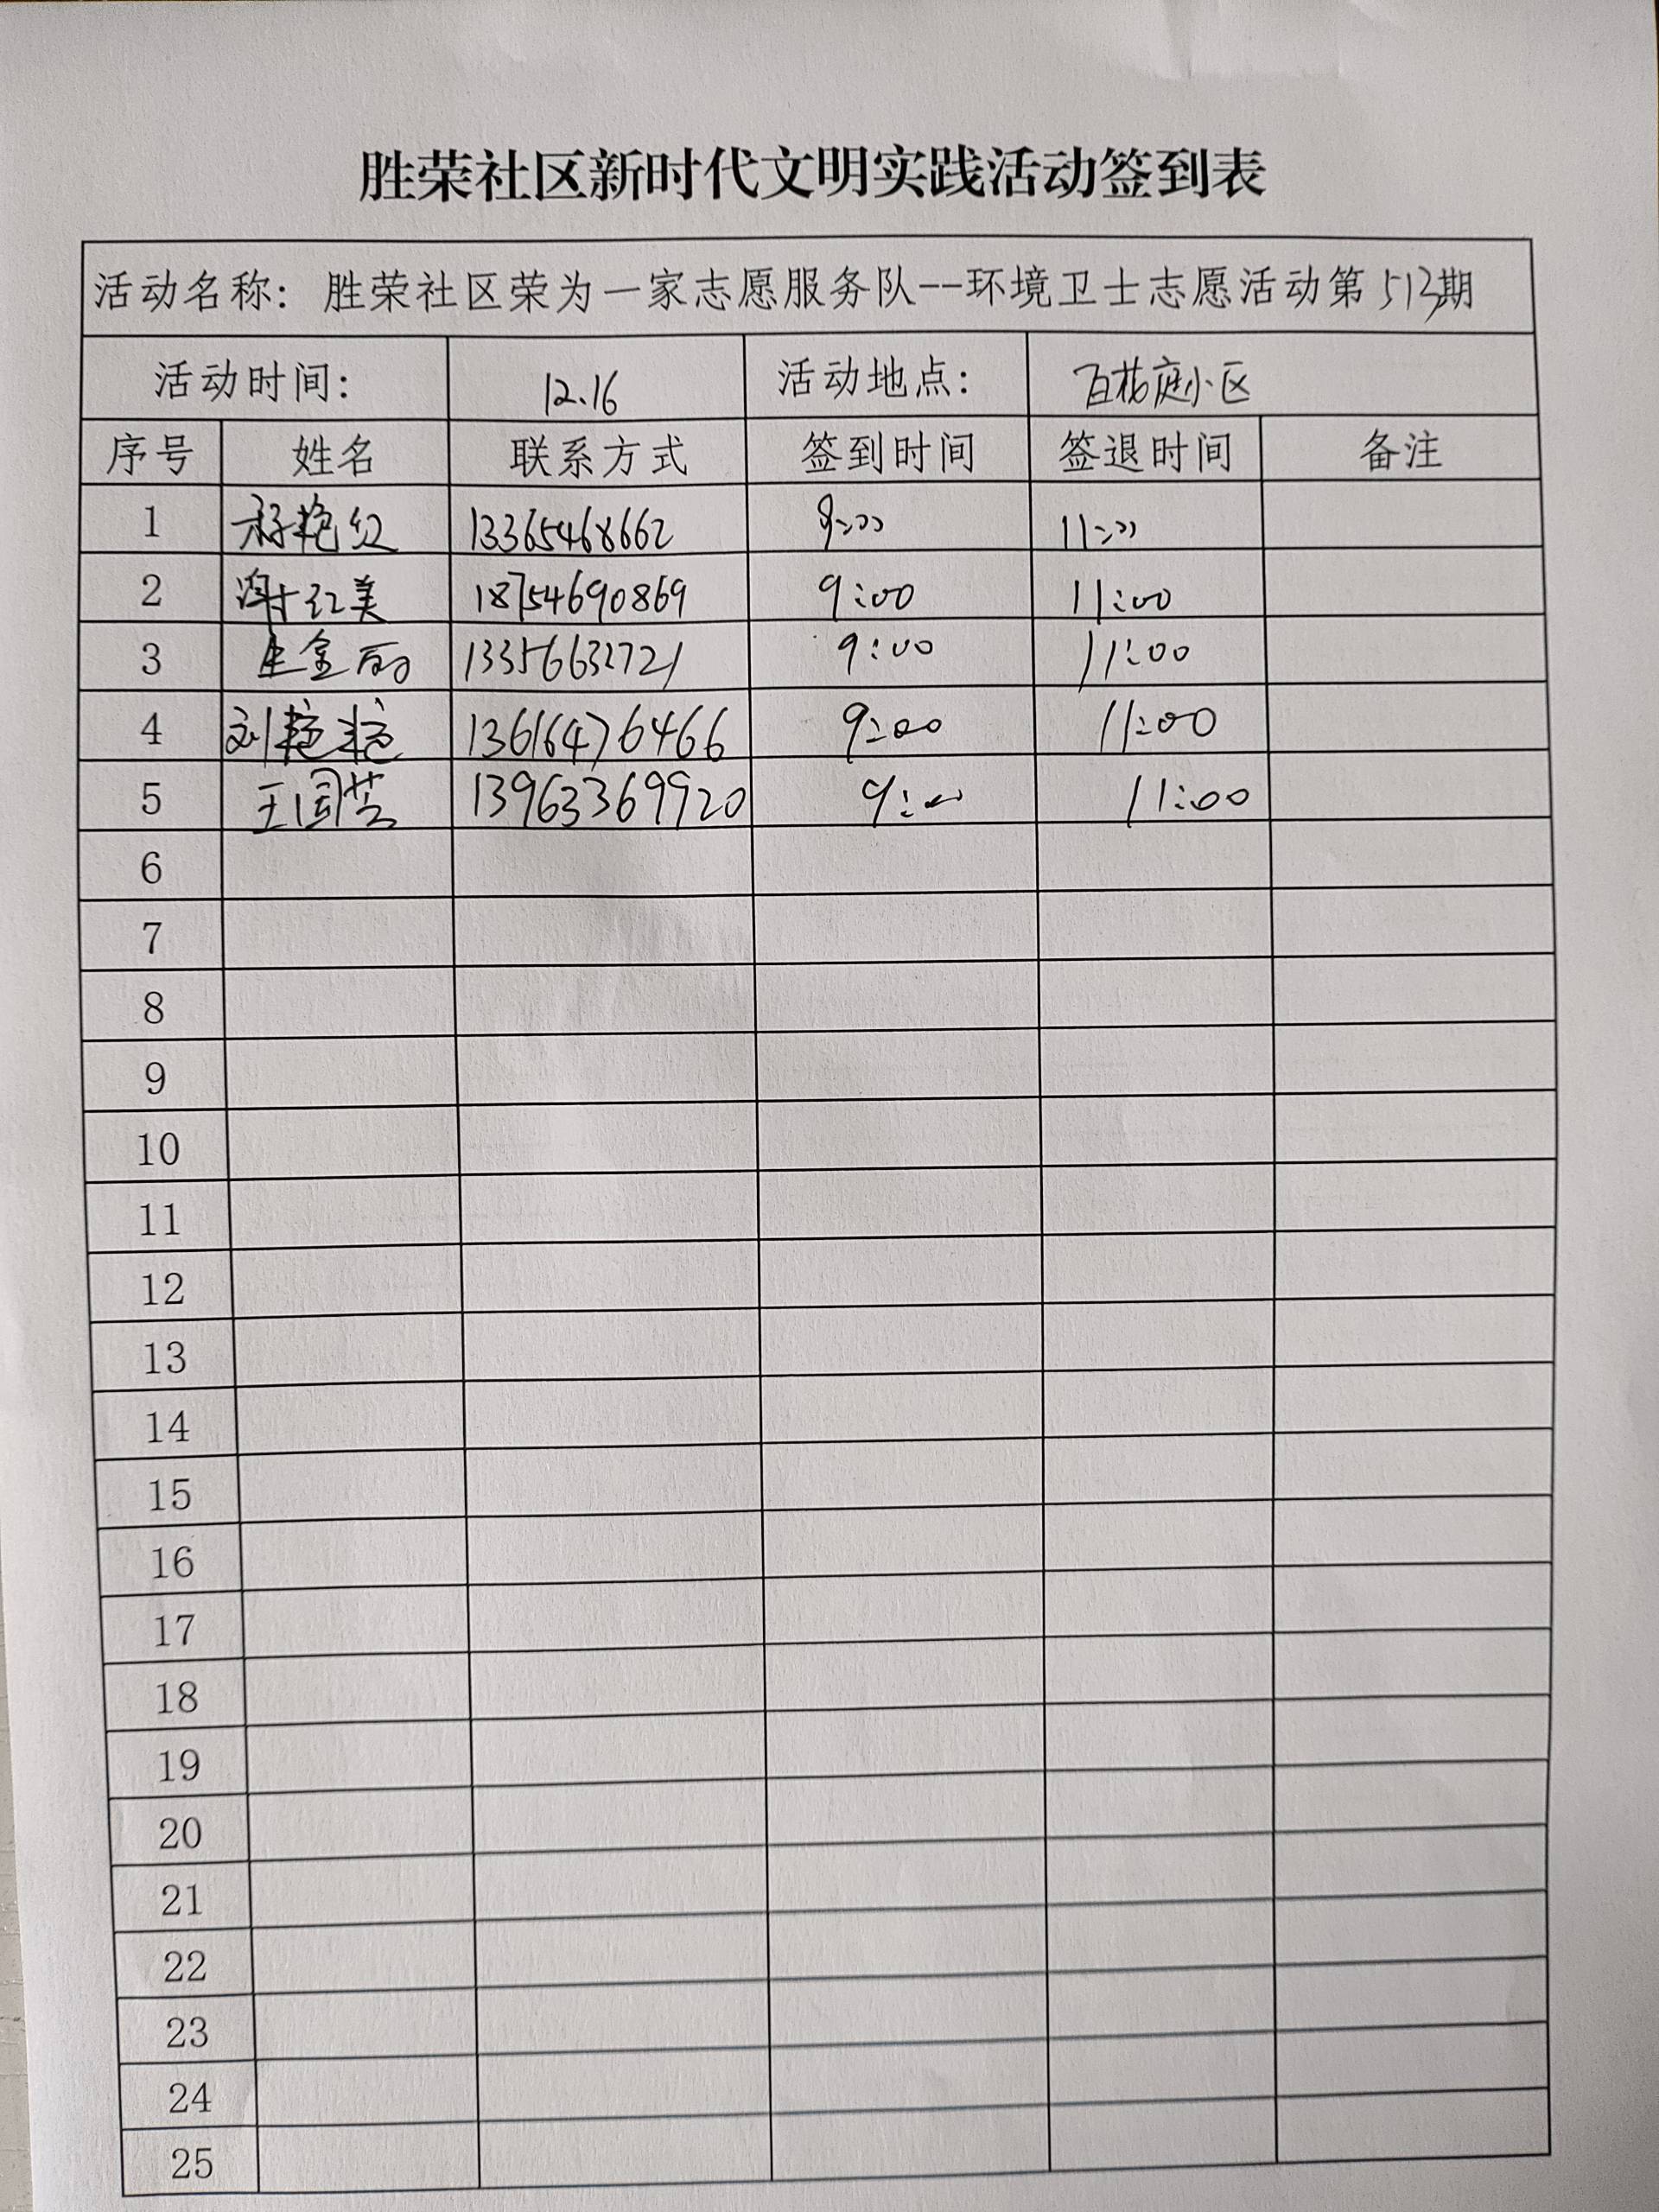 胜荣社区新时代文明实践活动签到表
活动名称：胜荣社区荣为一家志愿服务队--环境卫士志愿活动第513期
活动时间： 12.16 活动地点： 百花庭小区
序号 姓名 联系方式 签到时间 签退时间 备注
1 艳红 13365468662 9:00 11:00
2 谢红美 18754690869 9:00 11:00
3 金丽 13356632721 9:00 11:00
4 刘艳艳 13616476466 9:00 11:00
5 王国芸 13963369920 9:00 11:00
6
7
8
9
10
11
12
13
14
15
16
17
18
19
20
21
22
23
24
25